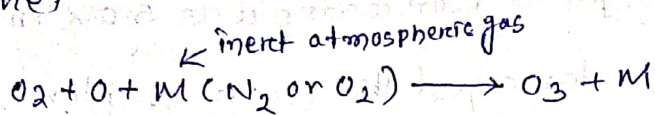 ↙ inerct atmospheric gas
O2 + O + M (N2 or O2) ⟶ O3 + M